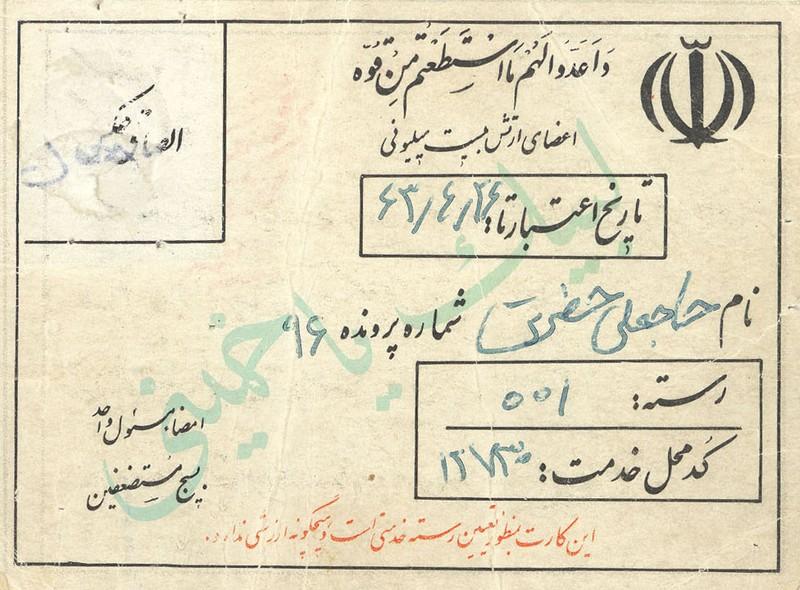 وَ اَعِدّوا لَهُم مَا اسْتَطَعْتُم مِنْ قُوّه
اعضای ارتش بیست میلیونی
تاریخ اعتبار تا: ۶۳/۴/۲۶
الصاق عکس
نام حاجعلی شماره پرونده ۹۶
رسته: ۵۰۱
کُد محل خدمت: ۱۲۷۳۰
امضا مسئول واحد
بسیج مستضعفین
این کارت بمنظور تعیین رسته خدمتی است و هیچگونه ارزشی ندارد.
لبیک یا خمینی